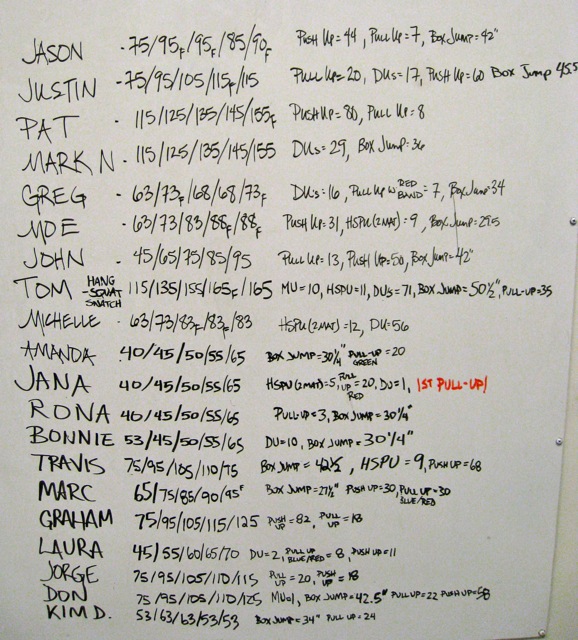 JASON - 75/95F/95F/85/90F Push Up = 44, Pull Up = 7, Box Jump = 42"
JUSTIN - 75/95/105/115F/115 Pull Up = 20, DUs = 17, Push Up = 60 Box Jump 45.5
PAT - 115/125/135/145/155F Push Up = 80, Pull Up = 8
MARK N - 115/125/135/145/155 DUs = 29, Box Jump = 36
GREG - 63/73F/68/68/73F DUs = 16, Pull Up w RED BAND = 7, Box Jump = 34
MOE - 63/73/83/88F/88F Push Up = 31, HSPU (2 MAT) = 9, Box Jump = 29.5
JOHN - 45/65/75/85/95 Pull Up = 13, Push Up = 50, Box Jump = 42"
TOM HANG -SQUAT SNATCH 115/135/155/165F/165 MU = 10, HSPU = 11, DUs = 71, BOX JUMP = 50 1/2", PULL-UP = 35
MICHELLE - 63/73/83F/83F/83 HSPU (2 MAT) = 12, DU = 56
AMANDA 40/45/50/55/65 BOX JUMP = 30 1/4" PULL-UP GREEN = 20
JANA 40/45/50/55/65 HSPU (2 MAT) = 5, PULL UP RED = 20, DU = 1, 1ST PULL-UP!
RONA 40/45/50/55/65 PULL-UP = 3, BOX JUMP = 30 1/4"
BONNIE 53/45/50/55/65 DU = 10, BOX JUMP = 30 1/4"
TRAVIS 75/95/105/110/75 BOX JUMP = 42 1/2, HSPU = 9, PUSH UP = 68
MARC 65/75/85/90/95F BOX JUMP = 27 1/2" PUSH UP = 30, PULL UP BLUE/RED = 30
GRAHAM 75/95/105/115/125 PUSH UP = 82, PULL UP = 18
LAURA 45/55/60/65/70 DU = 2, PULL UP BLUE/RED = 8, PUSH UP = 11
JORGE 75/95/105/110/115 PULL UP = 20, PUSH UP = 18
DON 75/95/105/110/125 MU=1, BOX JUMP = 42.5" PULL UP = 22 PUSH UP = 58
KIM D. 53/63/63/53/53 BOX JUMP = 34" PULL UP = 24